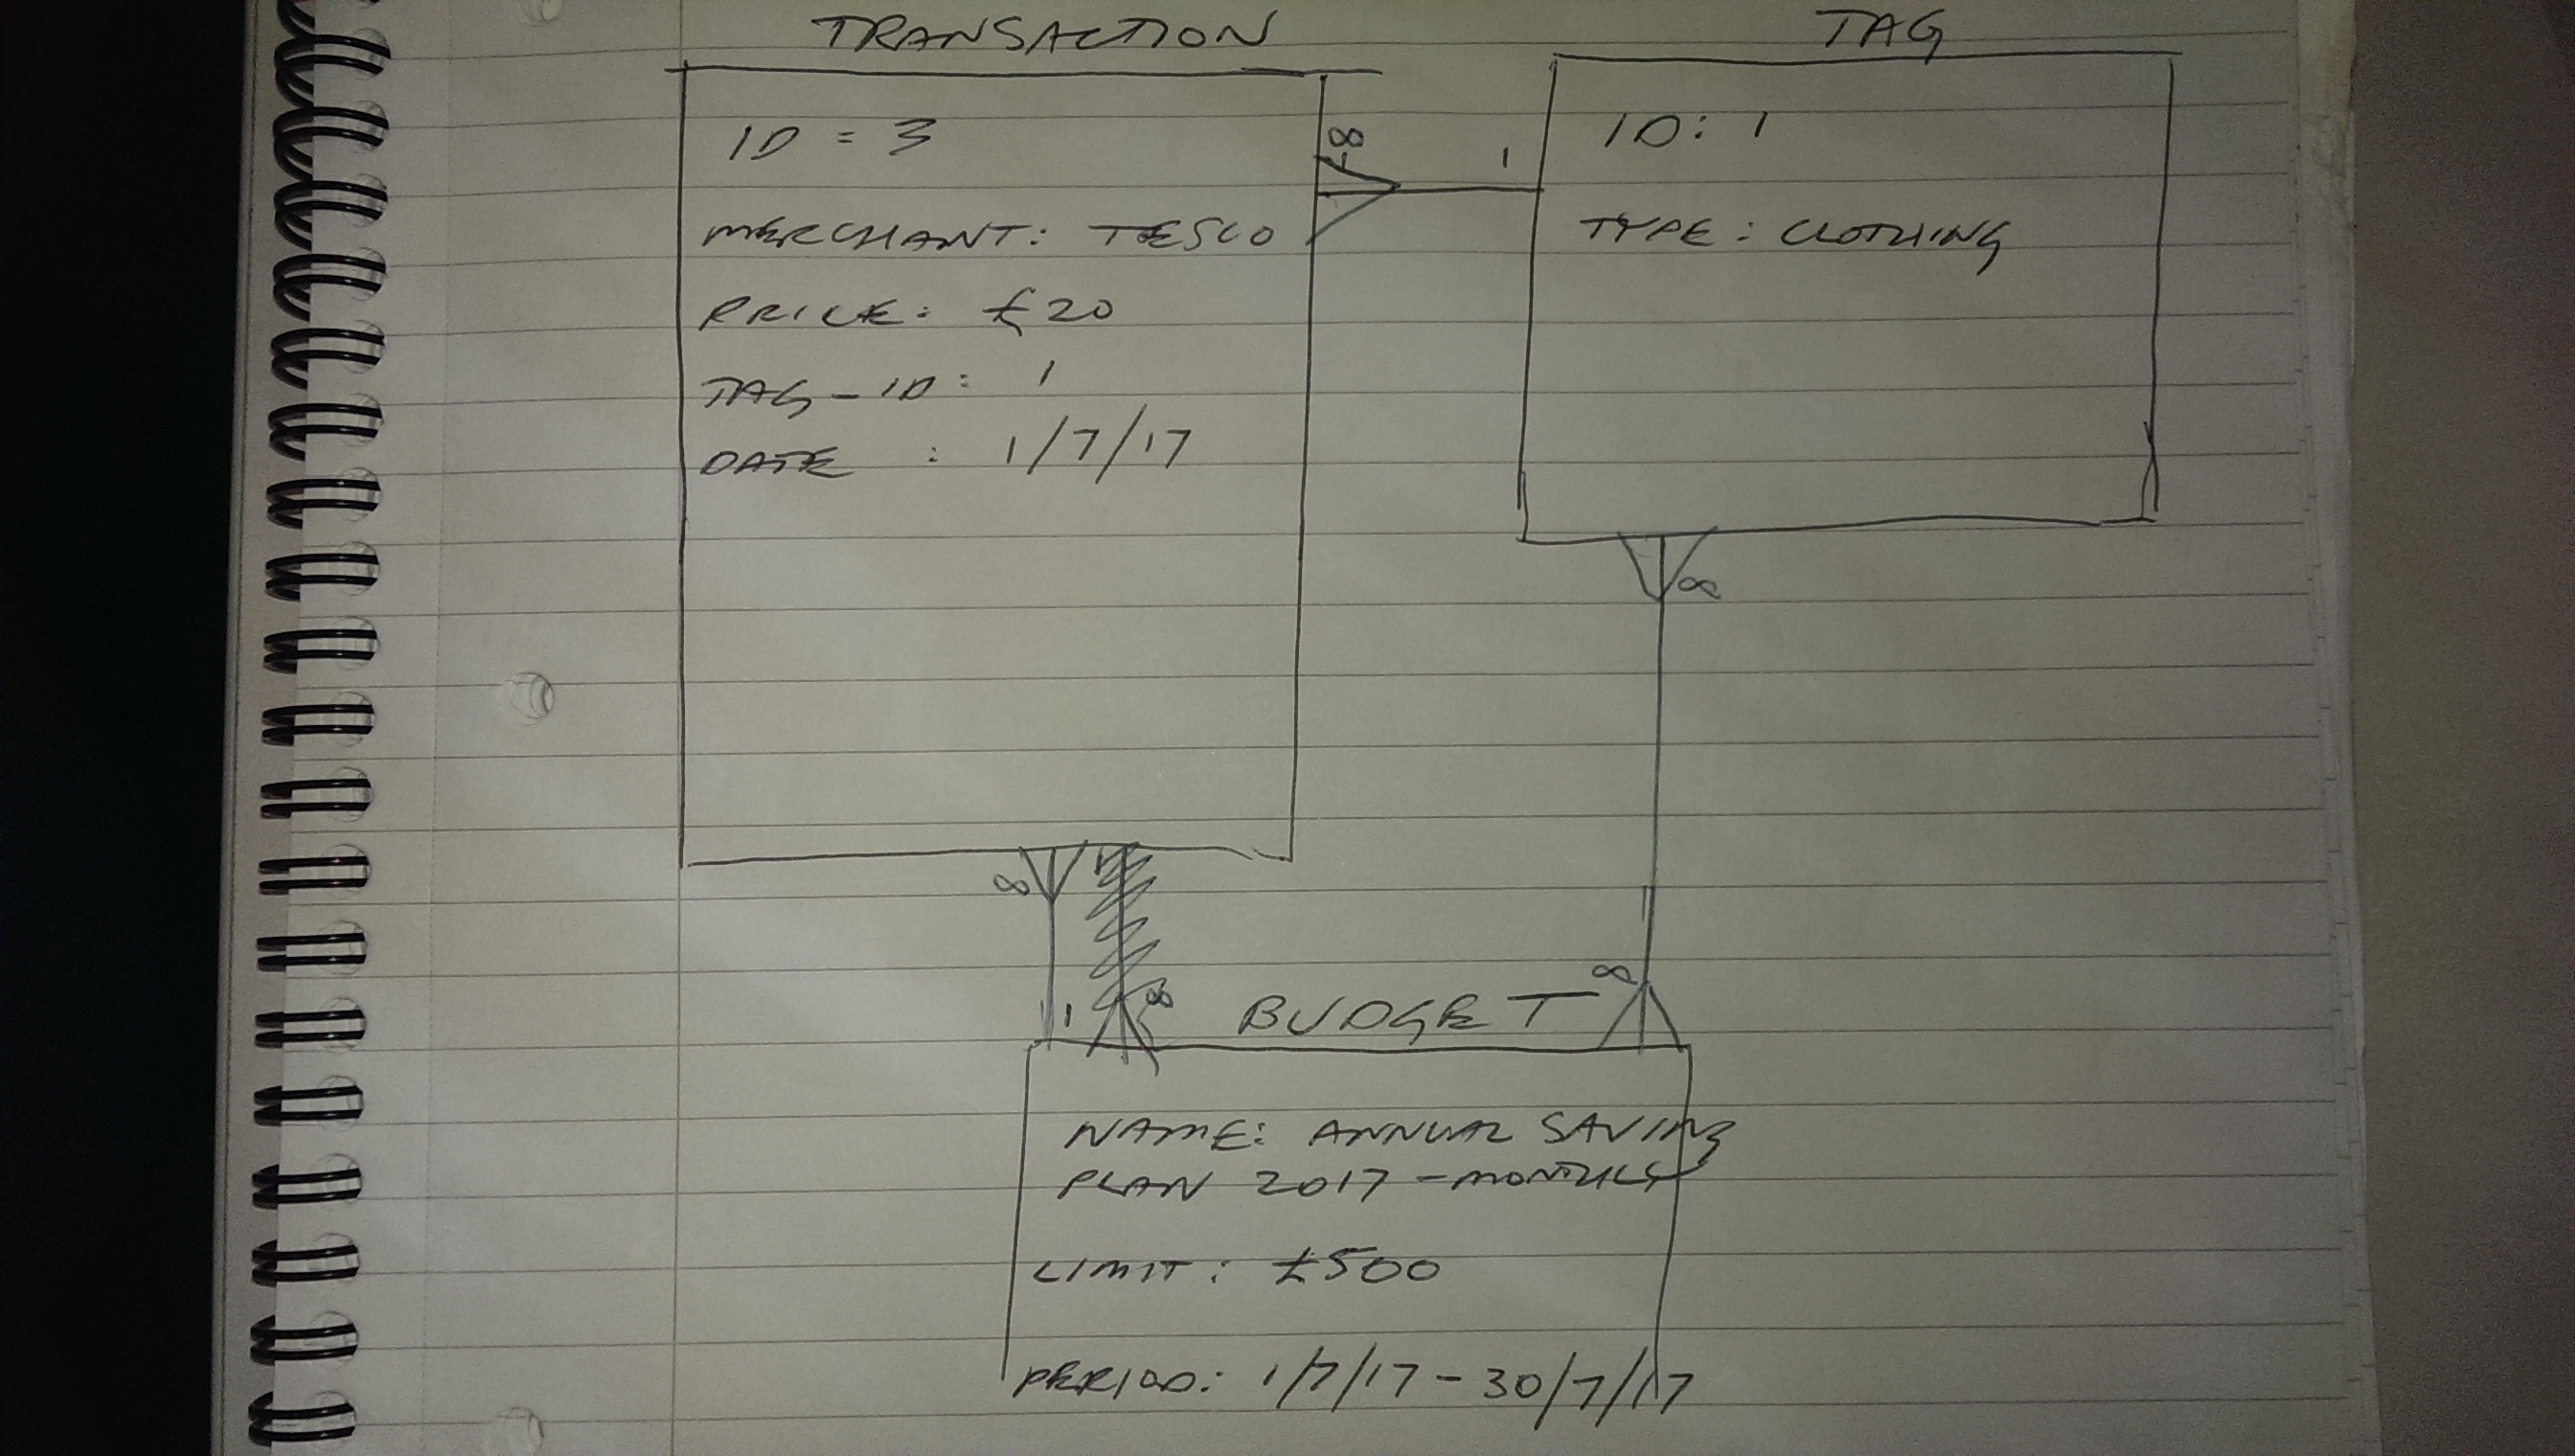 TRANSACTION
ID = 3
MERCHANT: TESCO
PRICE: £20
TAG-ID: 1
DATE : 1/7/17
∞
1
TAG
ID: 1
TYPE: CLOTHING
∞
∞
1
∞
∞
BUDGET
NAME: ANNUAL SAVING
PLAN 2017 - MONTHLY
LIMIT: £500
PERIOD: 1/7/17 - 30/7/17